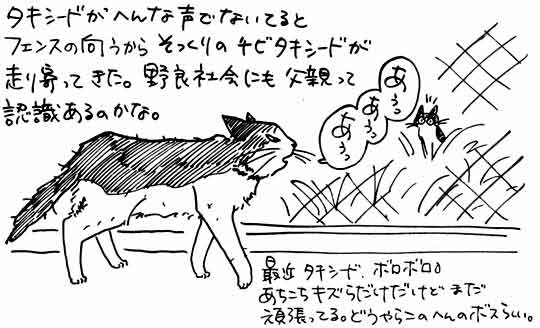 タキシードがへんな声でないてると
フェンスの向うからそっくりのチビタキシードが
走り寄ってきた。野良社会にも父親って
認識あるのかな。
あぅっ
あぅっ
あぅっ
最近タキシード、ボロボロ。
あちこちキズらだけだけどまだ
頑張ってる。どうやらこのへんのボスらしい。